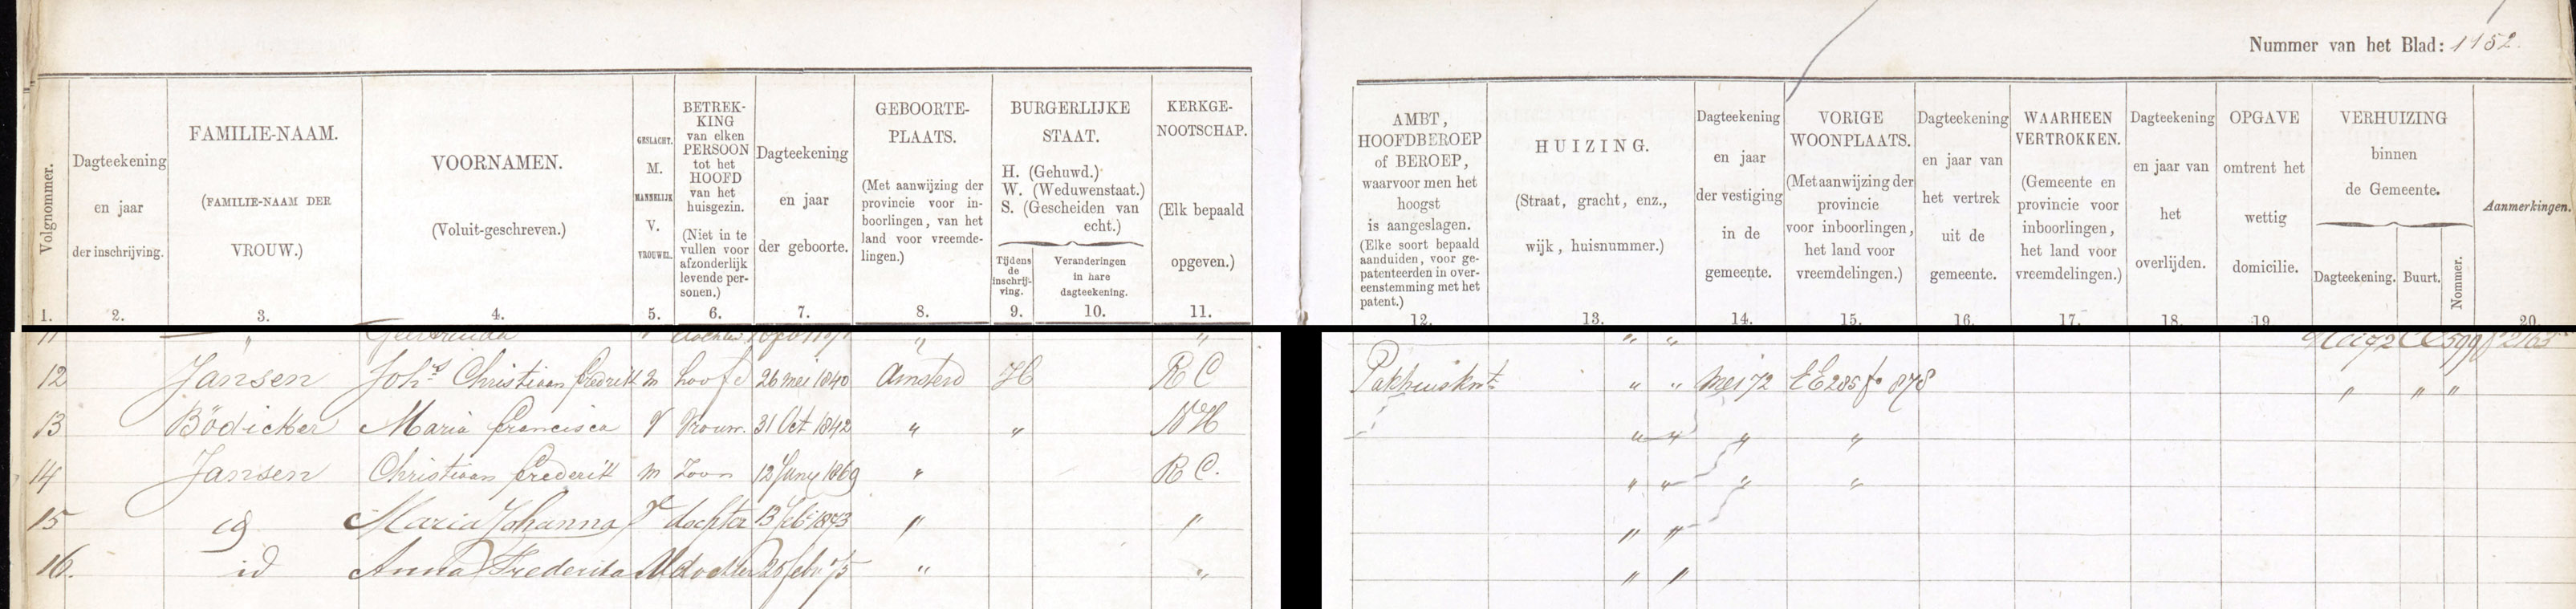 Nummer van het Blad: 1152.
Volgnommer.
1.
Dagteekening
en jaar
der inschrijving.
2.
FAMILIE-NAAM.
(FAMILIE-NAAM DER
VROUW.)
3.
VOORNAMEN.
(Voluit-geschreven.)
4.
GESLACHT.
M.
MANNELIJK
V.
VROUWEL.
5.
BETREK-
KING
van elken
PERSOON
tot het
HOOFD
van het
huisgezin.
(Niet in te
vullen voor
afzonderlijk
levende per-
sonen.)
6.
Dagteekening
en jaar
der geboorte.
7.
GEBOORTE-
PLAATS.
(Met aanwijzing der
provincie voor in-
boorlingen, van het
land voor vreemde-
lingen.)
8.
BURGERLIJKE
STAAT.
H. (Gehuwd.)
W. (Weduwenstaat.)
S. (Gescheiden van
echt.)
Tijdens
de
inschrij-
ving.
9.
Veranderingen
in hare
dagteekening.
10.
KERKGE-
NOOTSCHAP.
(Elk bepaald
opgeven.)
11.
AMBT,
HOOFDBEROEP
of BEROEP,
waarvoor men het
hoogst
is aangeslagen.
(Elke soort bepaald
aanduiden, voor ge-
patenteerden in over-
eenstemming met het
patent.)
12.
HUIZING.
(Straat, gracht, enz.,
wijk, huisnummer.)
13.
Dagteekening
en jaar
der vestiging
in de
gemeente.
14.
VORIGE
WOONPLAATS.
(Met aanwijzing der
provincie
voor inboorlingen,
het land voor
vreemdelingen.)
15.
Dagteekening
en jaar van
het vertrek
uit de
gemeente.
16.
WAARHEEN
VERTROKKEN.
(Gemeente en
provincie voor
inboorlingen,
het land voor
vreemdelingen.)
17.
Dagteekening
en jaar van
het
overlijden.
18.
OPGAVE
omtrent het
wettig
domicilie.
19.
VERHUIZING
binnen
de Gemeente.
Dagteekening.
Buurt.
Nommer.
Aanmerkingen.
20.
11 " Geertruida " "
12 Jansen Johs Christiaan fredrik m hoofd 26 mei 1840 Amsterd H R C Pakhuisknt " " Mei 72 EE 285 fo 878 " " "
13 Bödicker Maria francisca V Vrouw. 31 Oct 1842 " " N H " " " "
14 Jansen Christiaan frederik m Zoon 12 Juny 1869 " R C. " " " "
15 id Maria Johanna V dochter 13 feb 1873 " " " "
16. id Anna Frederika V dochter 20 febr 75 " " " "